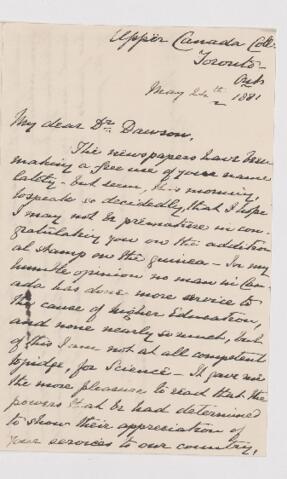 Upper Canada Coll.
Toronto
Ont
May 24th 1881
My dear Dr Dawson,
The newspapers have been
making a free use of your name
lately - but seem, this morning,
to speak so decidedly, that I hope
I may not be premature in con-
gratulating you on the addition-
al stamp on the guinea - In my
humble opinion no man in Can-
ada has done more service to
the cause of higher Education,
and none nearly so much, but
of this I am not at all competent
to judge, for Science - It gave me
the more pleasure to read that the
powers that be had determined
to show their appreciation of
your services to our country,